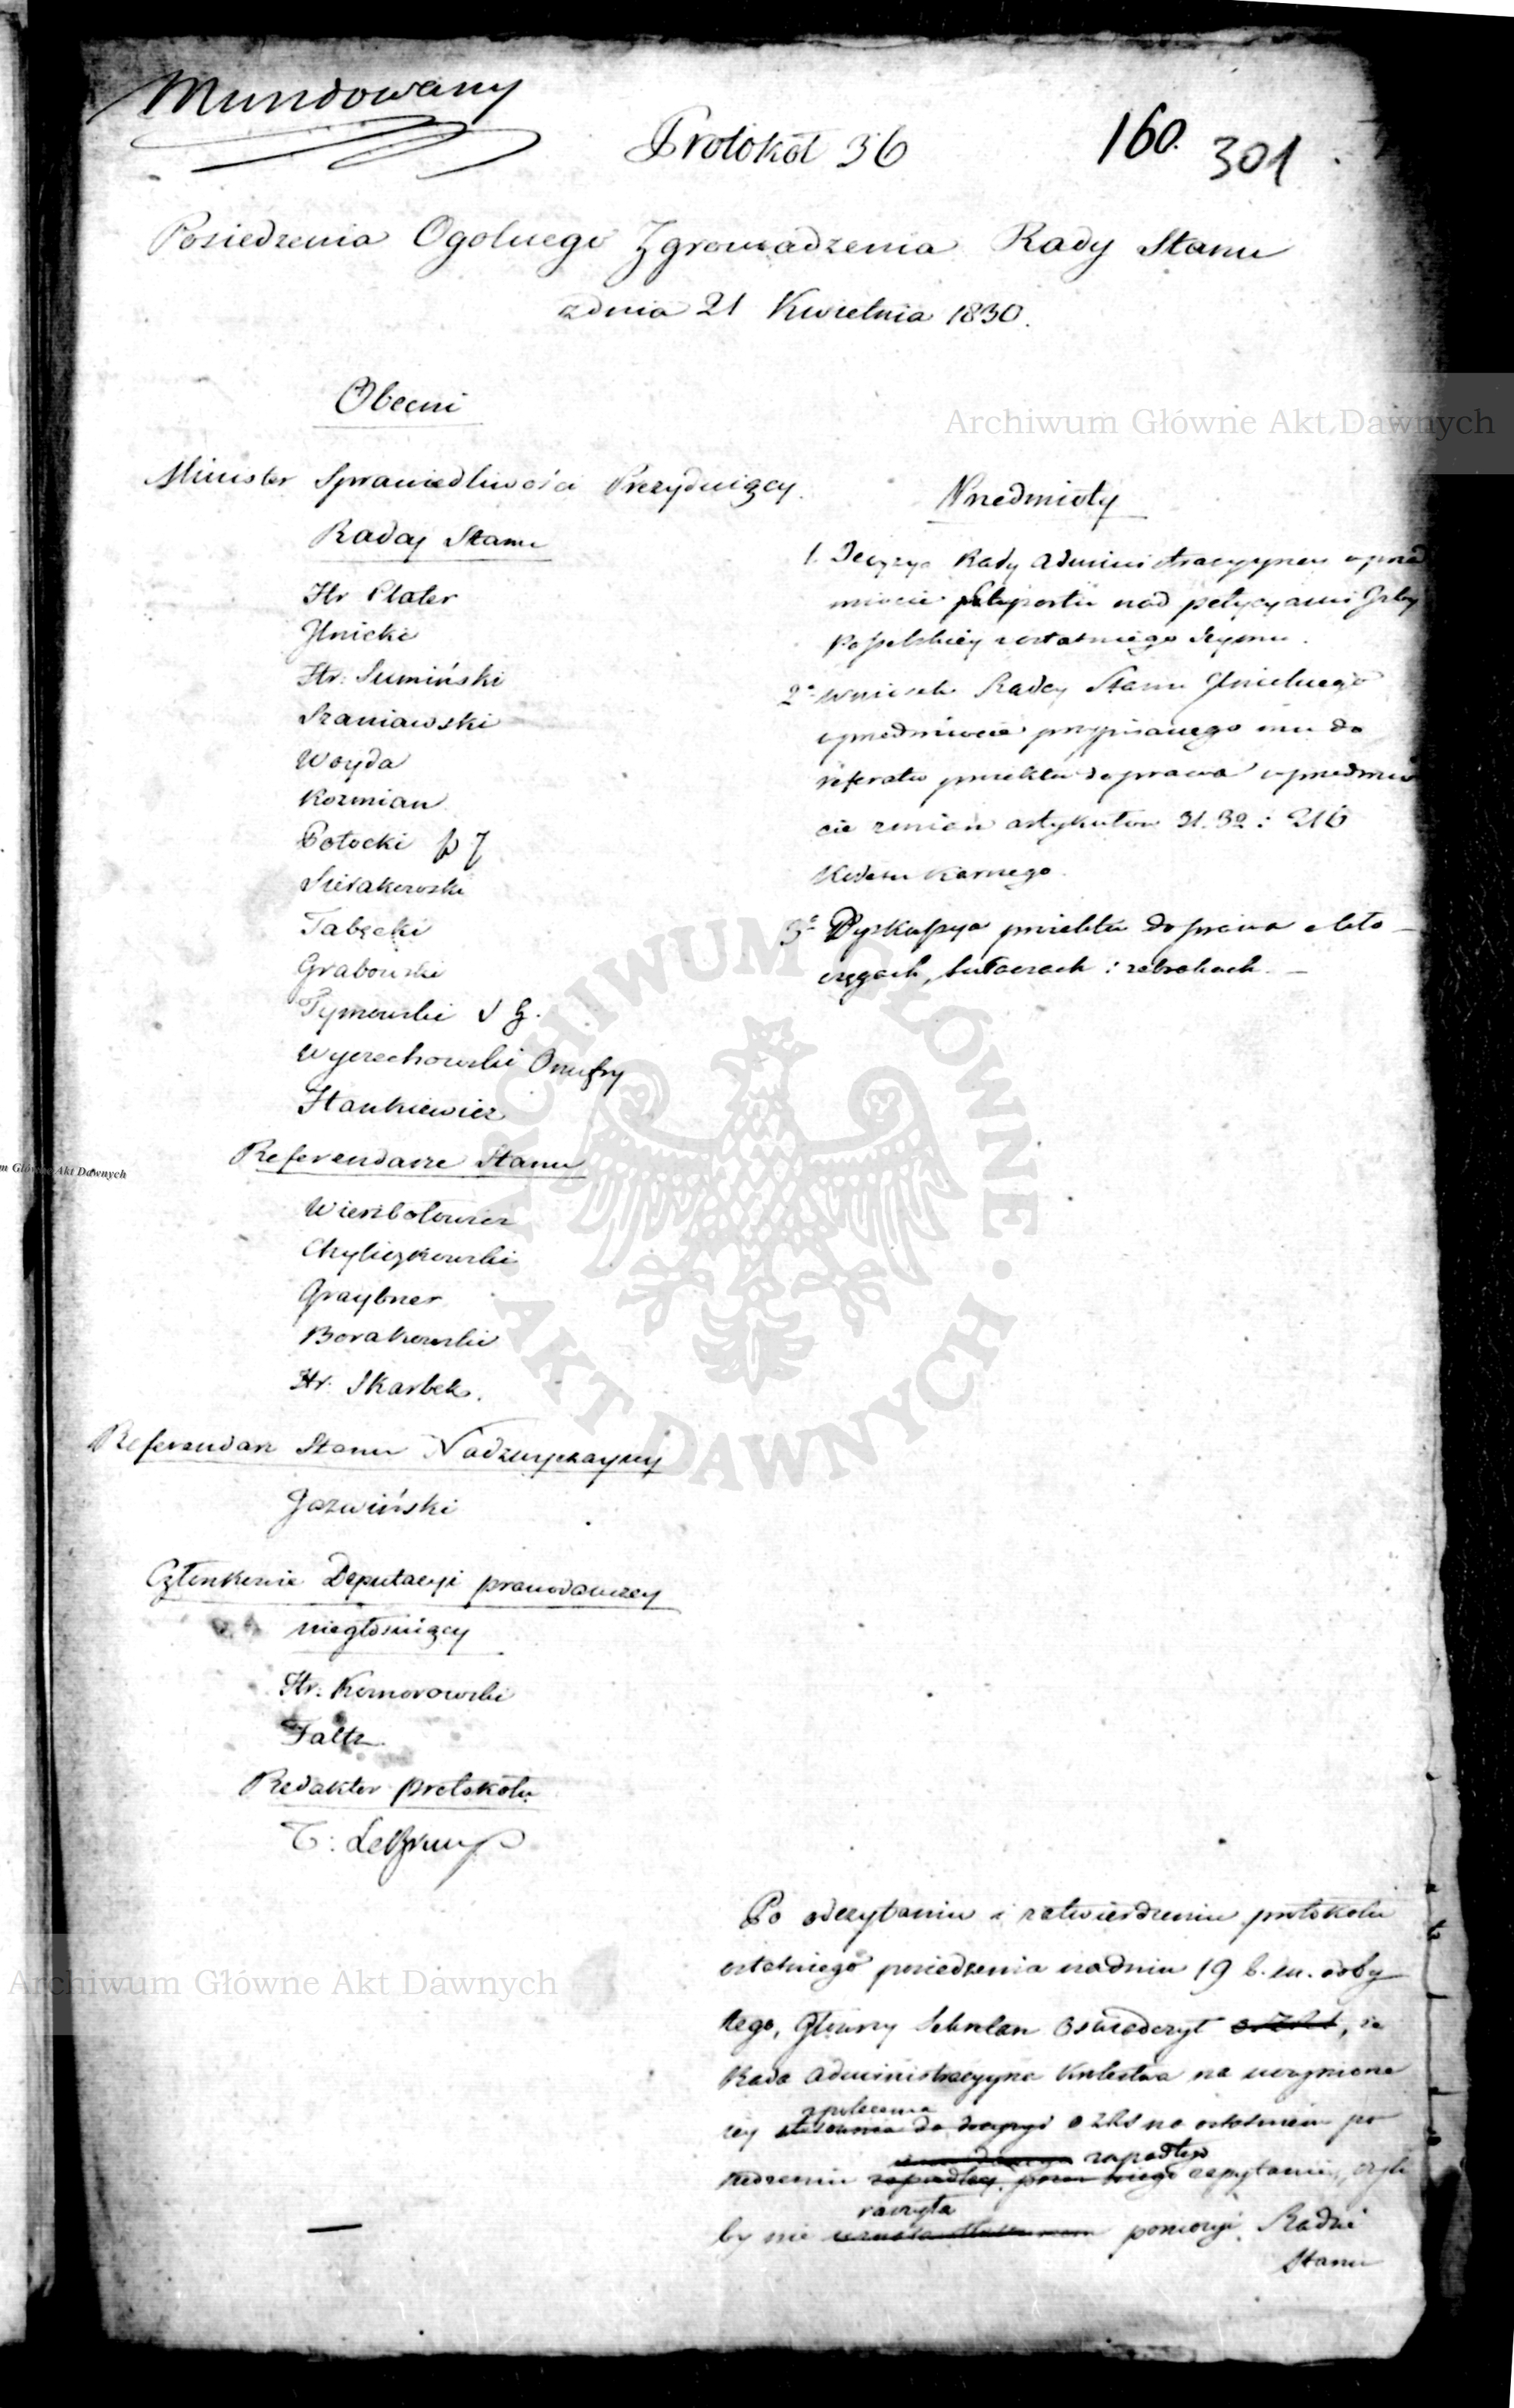 Mundowany
Protokół 36
160. 301
Posiedzenia Ogolnego Zgromadzenia Rady Stanu
z dnia 21 Kwietnia 1830.
Obecni
Minister Sprawiedliwości Prezyduiący.
Radcy Stanu
Hr Plater
Hr: Sumiński
Szaniawski
Woyda
Kozmian
Potocki
Sierakowski
Tabęcki
Grabowski
Tymowski
Wyczechowski Onufry
Hankiewicz
Referendarze Stanu
Wierzbołowicz
Chyliczkowski
Graybner
Borakowski
Hr. Skarbek.
Referendarz Stanu Nadzwyczayny
Jaźwiński
Członkowie Deputacyi prawodawczey
niegłosuiący
Hr. Komorowski
Faltz
Redaktor protokołu
Przedmioty
1. Decyzya Rady Administracyyney w przed
miocie nad petycyami Izby
Poselskiey z ostatniego Seymu.
2° Wniosek Radcy Stanu
w przedmiocie przypisanego mu do
referatu proiektu do prawa w przedmio
cie zmian artykułow 31. 32 i 216
Kodexu Karnego.
3° Dyskussya proiektu do prawa o włó-
częgach, tułaczach i żebrakach. -
Po odczytaniu i zatwierdzeniu protokołu
ostatniego posiedzenia na dniu 19 b. m. odby
tego, oswiadczył, że
Rada Administracyyna Królestwa na uczynione
z polecenia
na ostatniem po
siedzeniu zapadłego zapytanie, czyli
by nie raczyła pomoży Radzie
Stanu
Archiwum Główne Akt Dawnych
Archiwum Główne Akt Dawnych
m Główne Akt Dawnych
ARCHIWUM GŁÓWNE · AKT DAWNYCH ·